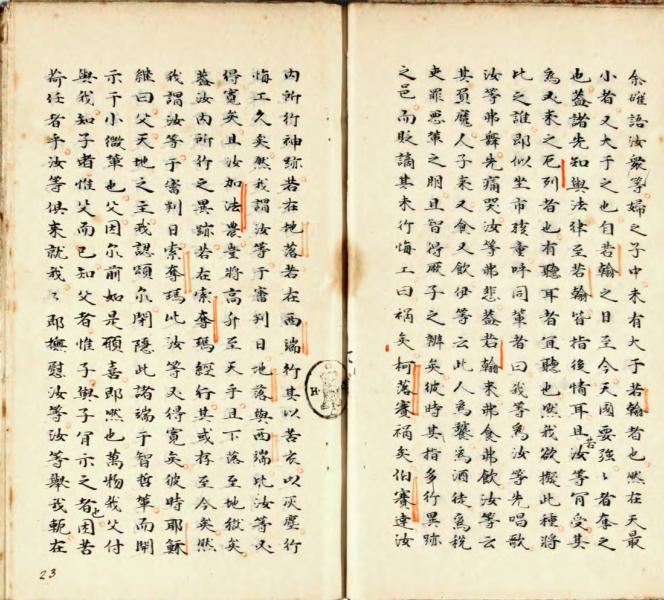 余確語汝衆等婦之子中未有大于若翰者也然在天最
小者又大于之也自若翰之日至今天國要強〻者奪之
也葢諸先知與法律至若翰皆指後情耳且汝等若肎受其
為又來之厄列者也有聽耳者宜聽也然我欲擬此種將
此之誰即似坐市孩童呼同輩者曰我等為汝等先唱歌
汝等弗舞先痛哭汝等弗悲葢若翰來弗食弗飲汝等云
其負魔人子來又食又飲伊等云此人為饕為酒徒為税
吏罪惡輩之朋且智得厥子之辨矣彼時其指多行異跡
之邑而貶謫其未行悔工曰禍矣柯落賽禍矣伯賽達汝
内所行神跡若在地落若在西端行其以苦衣以灰塵行
悔工久矣然我謂汝等于審判日地落與西端比汝等又
得寛矣且汝加法農豈將高升至天乎且下落至地獄矣
葢汝内所行之異跡若在索奪瑪經行其或存至今矣然
我謂汝等于審判日索奪瑪比汝等又得寛矣彼時耶穌
継曰父天地之主我認頌尔閉隱此諸端于智哲輩而開
示于小微輩也父因尔前如是頋喜即然也萬物我父付
與我知子者惟父而已知父者惟子與子肎示之者也困苦
荷任者乎汝等俱來就我〻即撫慰汝等汝等舉我軛在
23